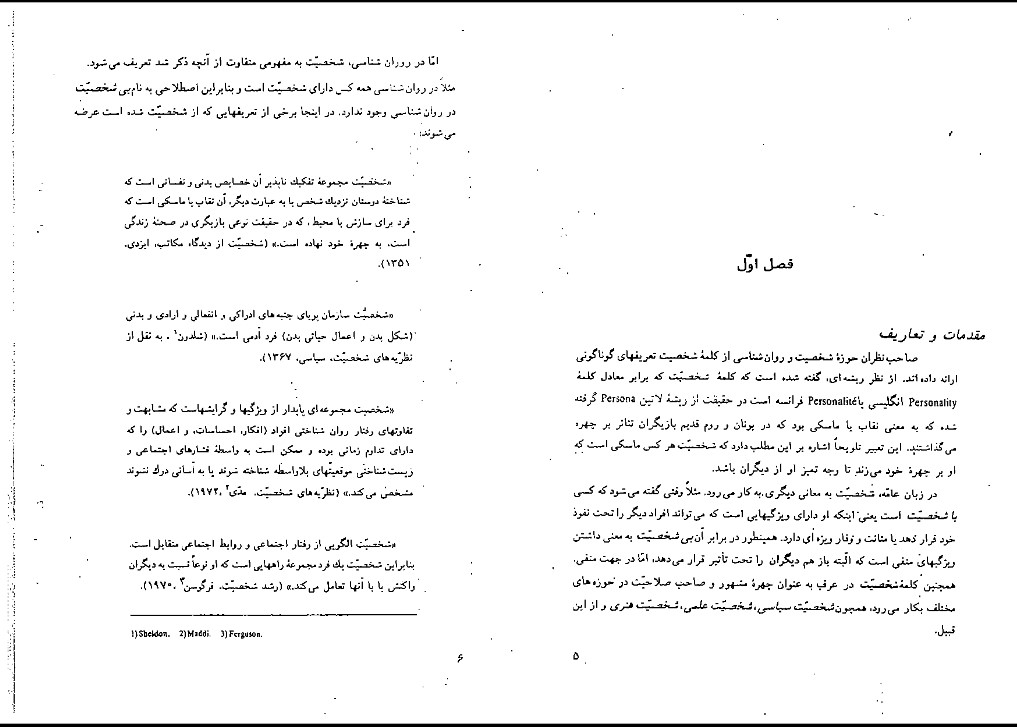 فصل اوّل
مقدمات و تعاریف
صاحب‌نظران حوزهٔ شخصیت و روان‌شناسی از کلمهٔ شخصیت تعریفهای گوناگونی
ارائه داده‌اند. از نظر ریشه‌ای، گفته شده است که کلمهٔ شخصیّت که برابر معادل کلمهٔ
Personality انگلیسی یا Personalité فرانسه است در حقیقت از ریشهٔ لاتین Persona گرفته
شده که به معنی نقاب یا ماسکی بود که در یونان و روم قدیم بازیگران تئاتر بر چهره
می‌گذاشتند. این تعبیر تلویحاً اشاره بر این مطلب دارد که شخصیّت هر کس ماسکی است که
او بر چهرهٔ خود می‌زند تا وجه تمیز او از دیگران باشد.
در زبان عامّه، شخصیّت به معانی دیگری به کار می‌رود. مثلاً وقتی گفته می‌شود که کسی
با شخصیّت است یعنی اینکه او دارای ویژگیهایی است که می‌تواند افراد دیگر را تحت نفوذ
خود قرار دهد یا متانت و وقار ویژه‌ای دارد. همینطور در برابر آن بی شخصیّت به معنی داشتن
ویژگیهای منفی است که البّته باز هم دیگران را تحت تأثیر قرار می‌دهد، امّا در جهت منفی.
همچنین کلمهٔ شخصیّت در عرف به عنوان چهرهٔ مشهور و صاحب صلاحیّت در حوزه‌های
مختلف بکار می‌رود، همچون شخصیّت سیاسی، شخصیّت علمی، شخصیّت هنری و از این
قبیل.
۵
امّا در روران شناسی، شخصیّت به مفهومی متفاوت از آنچه ذکر شد تعریف می‌شود.
مثلاً در روان‌شناسی همه کس دارای شخصیّت است و بنابراین اصطلاحی به نام بی شخصیّت
در روان‌شناسی وجود ندارد. در اینجا برخی از تعریفهایی که از شخصیّت شده است عرضه
می‌شوند:
«شخصیّت مجموعهٔ تفکیك ناپذیر آن خصایص بدنی و نفسانی است که
شناختهٔ دوستان نزدیك شخص یا به عبارت دیگر، آن نقاب یا ماسکی است که
فرد برای سازش با محیط، که در حقیقت نوعی بازیگری در صحنهٔ زندگی
است، به چهرهٔ خود نهاده است.» (شخصیّت از دیدگاه مکاتب، ایزدی،
۱۳۵۱).
«شخصیّت سازمان پویای جنبه‌های ادراکی و انفعالی و ارادی و بدنی
(شکل بدن و اعمال حیاتی بدن) فرد آدمی است.» (شلدون۱، به نقل از
نظریّه‌های شخصیّت، سیاسی، ۱۳۶۷).
«شخصیت مجموعه‌ای پایدار از ویژگیها و گرایشهاست که مشابهت و
تفاوتهای رفتار روان شناختی افراد (افکار، احساسات، و اعمال) را که
دارای تداوم زمانی بوده و ممکن است به واسطهٔ فشارهای اجتماعی و
زیست‌شناختی موقعیّتهای بلاواسطه شناخته شوند یا به آسانی درك نشوند
مشخص می‌کند.» (نظریّه‌های شخصیّت، مدّی۲، ۱۹۷۲).
«شخصیّت الگویی از رفتار اجتماعی و روابط اجتماعی متقابل است.
بنابراین شخصیّت یك فرد مجموعهٔ راههایی است که او نوعاً نسبت به دیگران
واکنش یا با آنها تعامل می‌کند.» (رشد شخصیّت، فرگوسن۳، ۱۹۷۰).
1) Sheldon. 2) Maddi. 3) Ferguson.
۶